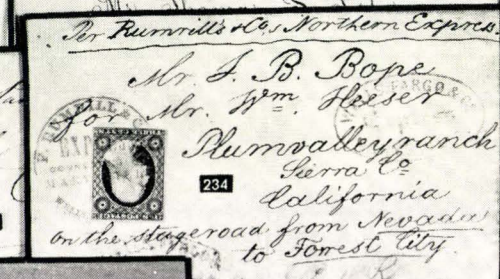 Per Rumrill & Co,s Northern Express
Mr. J. B. Bope
for Mr. Wm. Heeser
Plumvalley ranch
Sierra Co
California
on the stageroad from Nevada
to Forrest City
RUMRILL & CO
EXPRESS
FARGO & CO
234